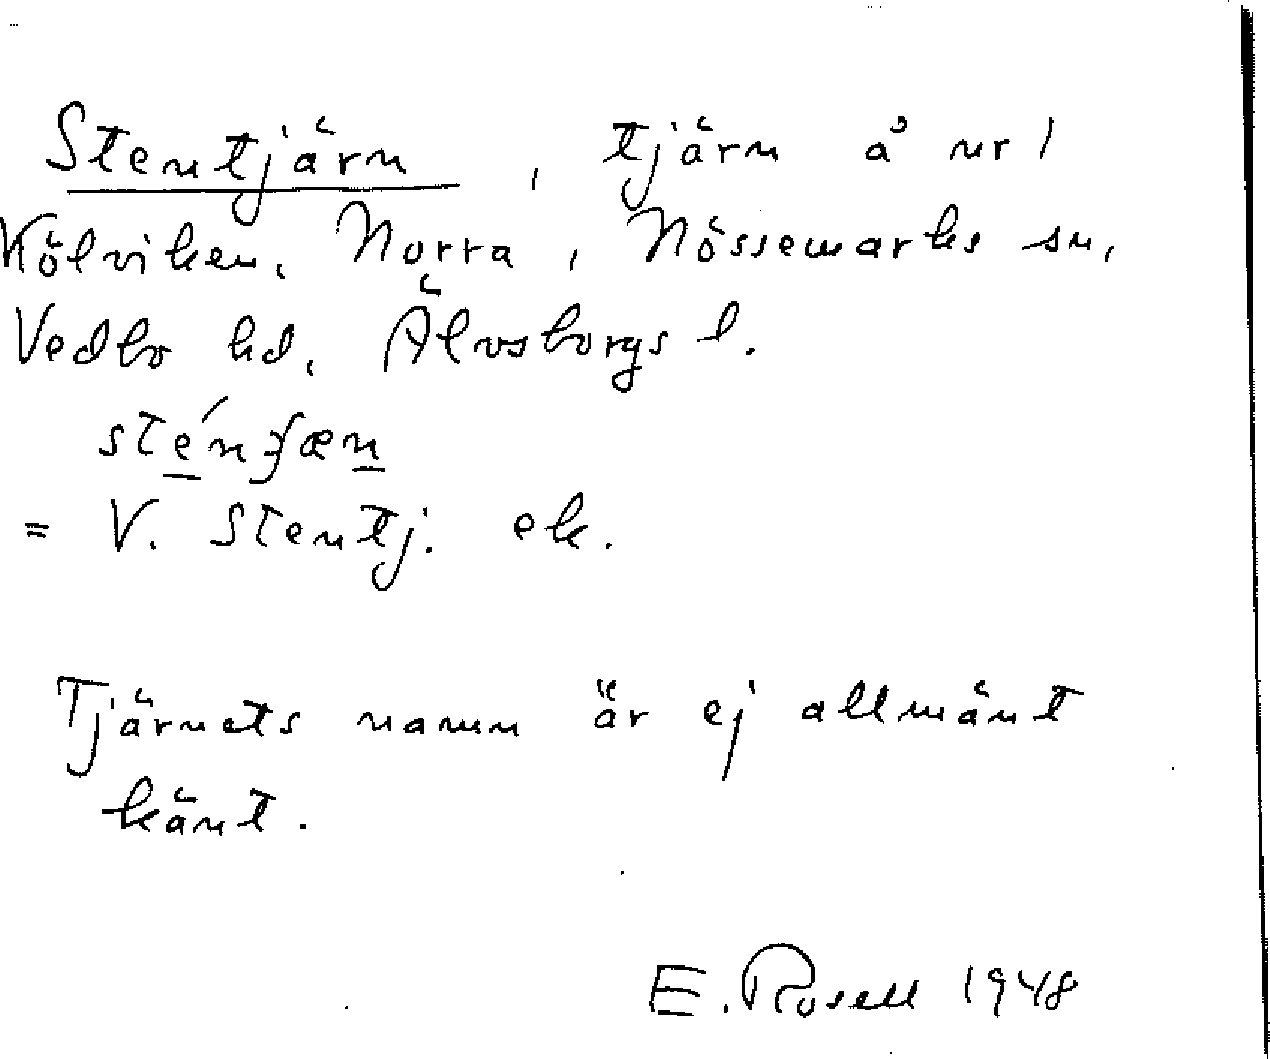 Stentjärn, tjärn å nr 1
Kölviken, Norra, Nössemarks sn,
Vedbo hd, Älvsborgs l.
= V. Stentj. ek.
Tjärnets namn är ej allmänt
känt.
E. Rosell 1948